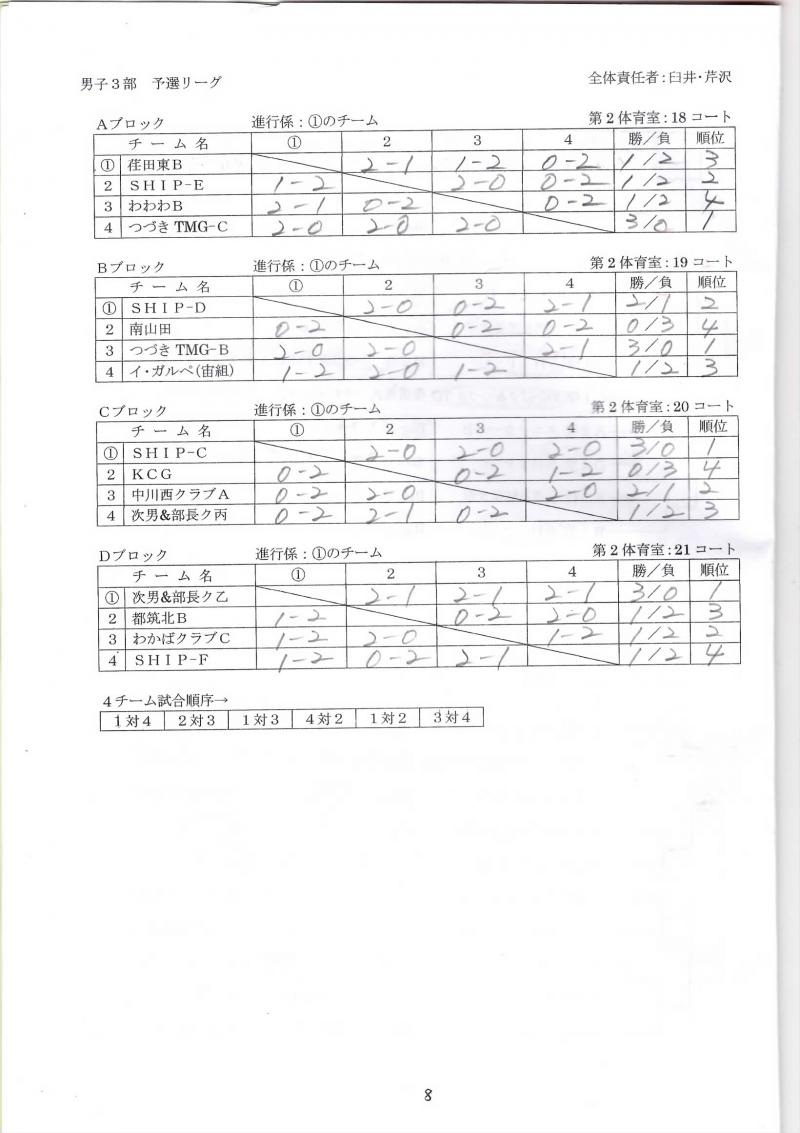 男子３部　予選リーグ　全体責任者：臼井・芹沢
Ａブロック　進行係：①のチーム　第２体育室：18 コート
チ ー ム 名　①　2　3　4　勝／負　順位
①　荏田東Ｂ　2-1　1-2　0-2　1/2　3
2　ＳＨＩＰ-Ｅ　1-2　2-0　0-2　1/2　2
3　わわわＢ　2-1　0-2　0-2　1/2　4
4　つづき TMG-C　2-0　2-0　2-0　3/0　1
Ｂブロック　進行係：①のチーム　第２体育室：19 コート
チ ー ム 名　①　2　3　4　勝／負　順位
①　ＳＨＩＰ-Ｄ　2-0　0-2　2-1　2/1　2
2　南山田　0-2　0-2　0-2　0/3　4
3　つづき TMG-B　2-0　2-0　2-1　3/0　1
4　イ・ガルペ（宙組）　1-2　2-0　1-2　1/2　3
Ｃブロック　進行係：①のチーム　第２体育室：20 コート
チ ー ム 名　①　2　3　4　勝／負　順位
①　ＳＨＩＰ-Ｃ　2-0　2-0　2-0　3/0　1
2　ＫＣＧ　0-2　0-2　1-2　0/3　4
3　中川西クラブＡ　0-2　2-0　2-0　2/1　2
4　次男&部長ク丙　0-2　2-1　0-2　1/2　3
Ｄブロック　進行係：①のチーム　第２体育室：21 コート
チ ー ム 名　①　2　3　4　勝／負　順位
①　次男&部長ク乙　2-1　2-1　2-1　3/0　1
2　都筑北Ｂ　1-2　0-2　2-0　1/2　3
3　わかばクラブＣ　1-2　2-0　1-2　1/2　2
4　ＳＨＩＰ-Ｆ　1-2　0-2　2-1　1/2　4
４チーム試合順序→
１対４　２対３　１対３　４対２　１対２　３対４
8